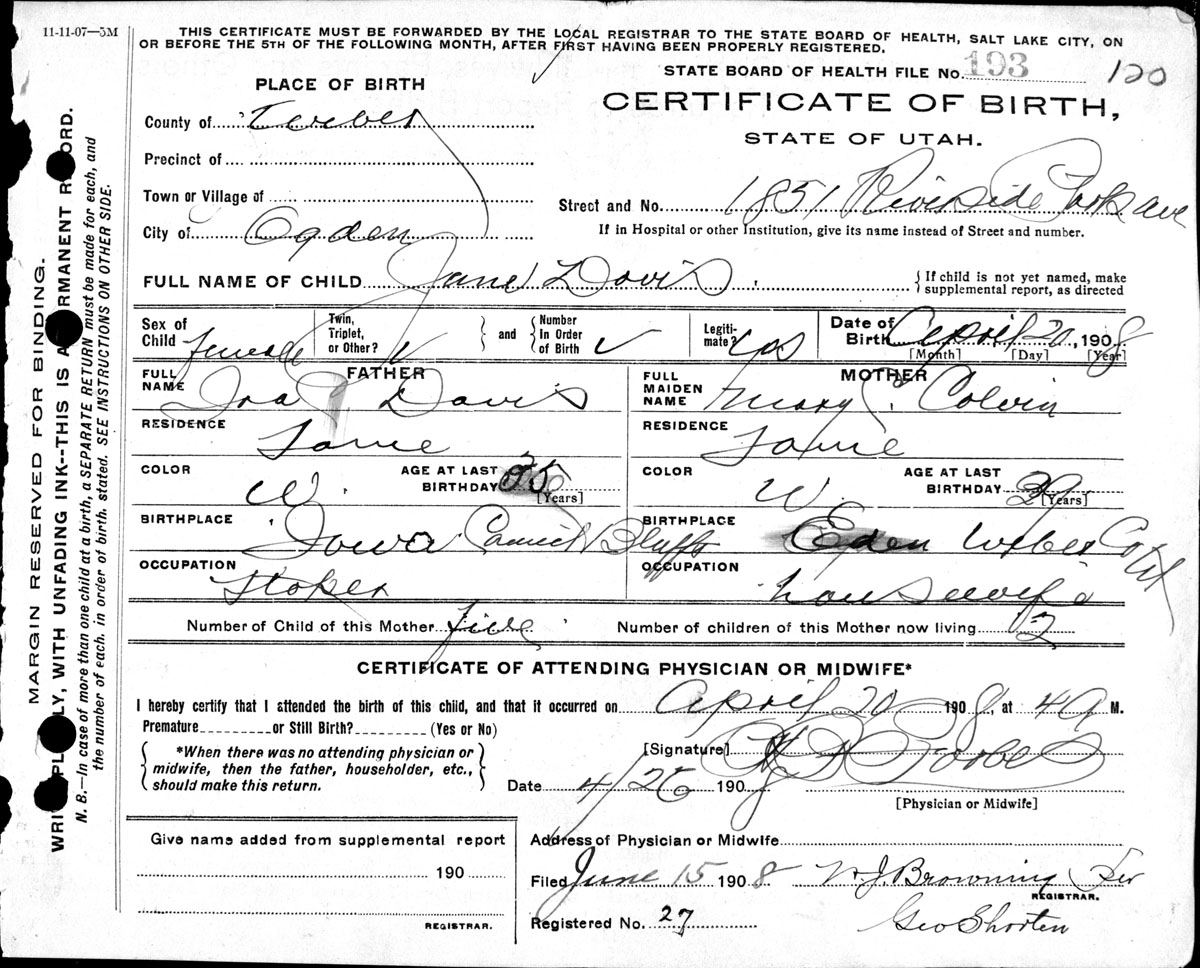 11-11-07—5M
THIS CERTIFICATE MUST BE FORWARDED BY THE LOCAL REGISTRAR TO THE STATE BOARD OF HEALTH, SALT LAKE CITY, ON
OR BEFORE THE 5TH OF THE FOLLOWING MONTH, AFTER FIRST HAVING BEEN PROPERLY REGISTERED.
STATE BOARD OF HEALTH FILE No. 193 120
PLACE OF BIRTH
CERTIFICATE OF BIRTH,
STATE OF UTAH.
County of Weber
Precinct of
Town or Village of
Street and No. 1851 Riverside Park ave
City of Ogden
If in Hospital or other Institution, give its name instead of Street and number.
FULL NAME OF CHILD Jane Davis {If child is not yet named, make
supplemental report, as directed
Sex of Child female Twin, Triplet, or Other? and Number In Order of Birth Legitimate? yes Date of Birth April 20, 1908
[Month] [Day] [Year]
FATHER
MOTHER
FULL NAME Ira J. Davis FULL MAIDEN NAME Mary E. Colvin
RESIDENCE Same RESIDENCE Same
COLOR W. AGE AT LAST BIRTHDAY 35 [Years] COLOR W. AGE AT LAST BIRTHDAY 39 [Years]
BIRTHPLACE Iowa Council Bluffs BIRTHPLACE Eden Weber Co Ut
OCCUPATION Stoker OCCUPATION housewife
Number of Child of this Mother five Number of children of this Mother now living 2
CERTIFICATE OF ATTENDING PHYSICIAN OR MIDWIFE*
I hereby certify that I attended the birth of this child, and that it occurred on April 20 1908, at 4 a M.
Premature or Still Birth? (Yes or No)
*When there was no attending physician or
midwife, then the father, householder, etc.,
should make this return.
[Signature] Forbes
Date 4/26 1908
[Physician or Midwife]
Give name added from supplemental report
190
REGISTRAR.
Address of Physician or Midwife
Filed June 15 1908 W. J. Browning
REGISTRAR.
Registered No. 27 Geo Shorten
MARGIN RESERVED FOR BINDING.
WRITE PLAINLY, WITH UNFADING INK--THIS IS A PERMANENT RECORD.
N. B.—In case of more than one child at a birth, a SEPARATE RETURN must be made for each, and
the number of each, in order of birth, stated. SEE INSTRUCTIONS ON OTHER SIDE.